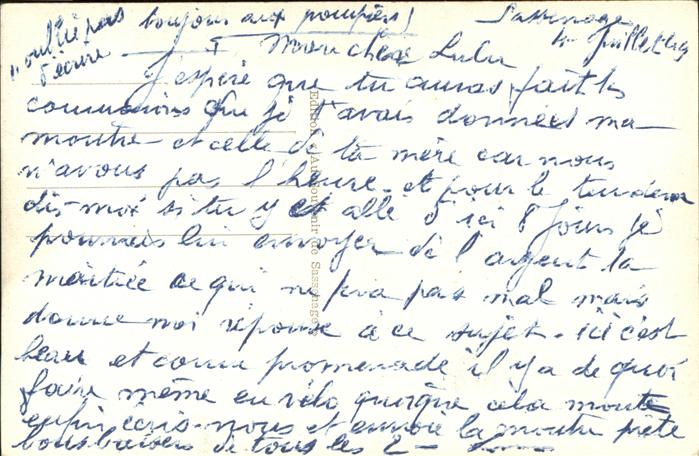 n'oublie pas d'écrire toujours aux pompiers!
Sassenage
Juillet
Mon cher Lulu
J'espère que tu auras fait les
commissions que je t'avais données ma
montre et celle de ta mère car nous
n'avons pas l'heure - et pour le tendeur
dis-moi si tu y est allé d'ici 8 jours je
pourrais lui envoyer de l'argent la
moitiée ce qui ne fera pas mal mais
donne moi réponse à ce sujet. ici c'est
beau et comme promenade il y a de quoi
faire même en vélo quoique cela monte
enfin écris-nous et envoie la montre prête
bons baisers de tous les 2 -
Edition "Au Souvenir de Sassenage"